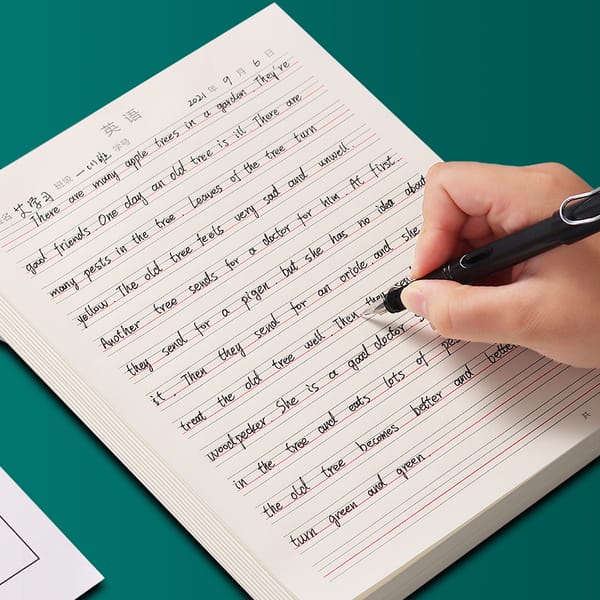 英语
2021 年 9 月 6 日
姓名 艾学习 班级 学号
There are many apple trees in a garden. They're
good friends. One day an old tree is ill. There are
many pests in the tree. Leaves of the tree turn
yellow. The old tree feels very sad and unwell.
Another tree sends for a doctor for him. At first.
they send for a pigen. but she has no idea about
it. Then they send for an oriole and she
treat the old tree well. Then they
woodpecker. She is a good doctor
in the tree and eats lots of
the old tree becomes better and better
turn green and green.
共